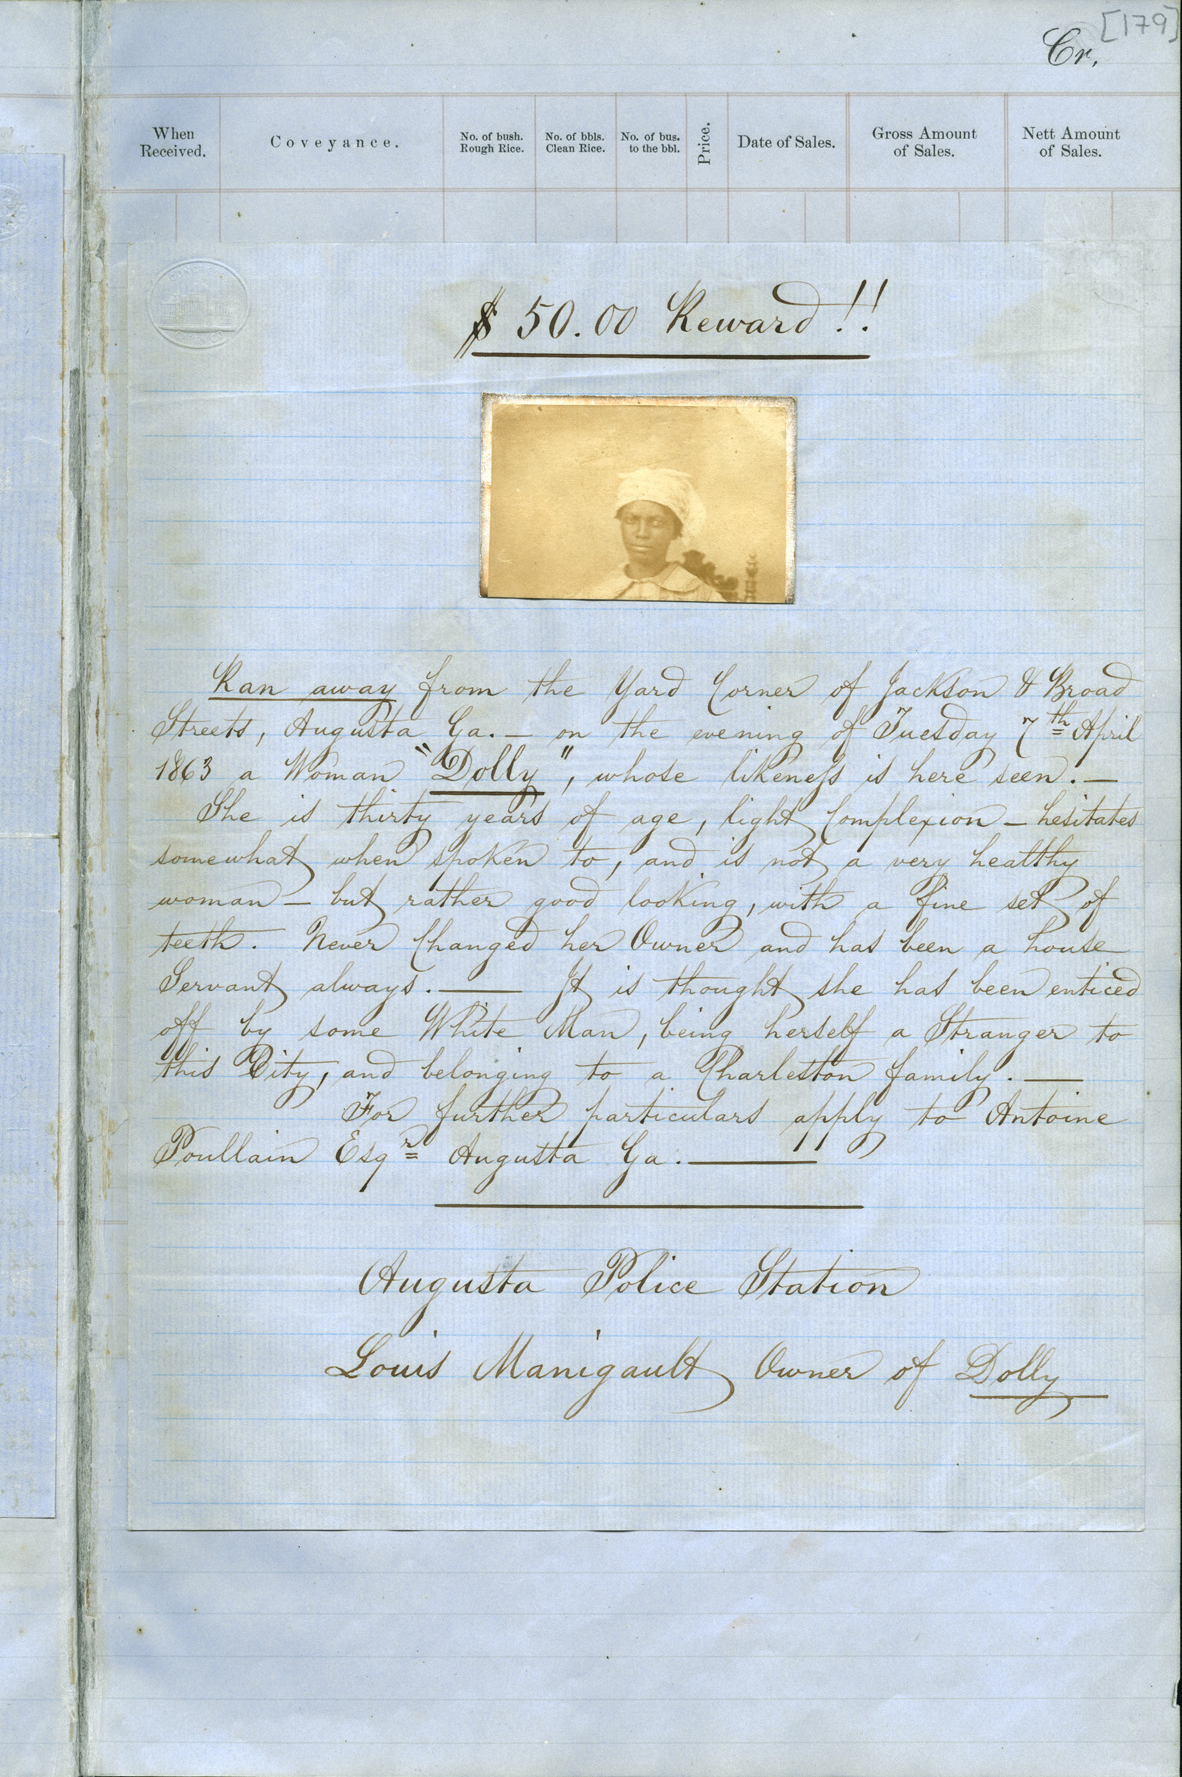 [179]
Cr.
When Received. Coveyance. No. of bush. Rough Rice. No. of bbls. Clean Rice. No. of bus. to the bbl. Price. Date of Sales. Gross Amount of Sales. Nett Amount of Sales.
$50.00 Reward!!
Ran away from the Yard Corner of Jackson & Broad
Streets, Augusta Ga. — on the evening of Tuesday 7th April
1863 a Woman "Dolly", whose likeness is here seen. —
She is thirty years of age, light Complexion — hesitates
somewhat when spoken to, and is not a very healthy
woman — but rather good looking, with a fine set of
teeth. Never Changed her Owner and has been a house
Servant always. — It is thought she has been enticed
off by some White Man, being herself a Stranger to
this City, and belonging to a Charleston family. —
For further particulars apply to Antoine
Poullain Esqr Augusta Ga. —
Augusta Police Station
Louis Manigault Owner of Dolly